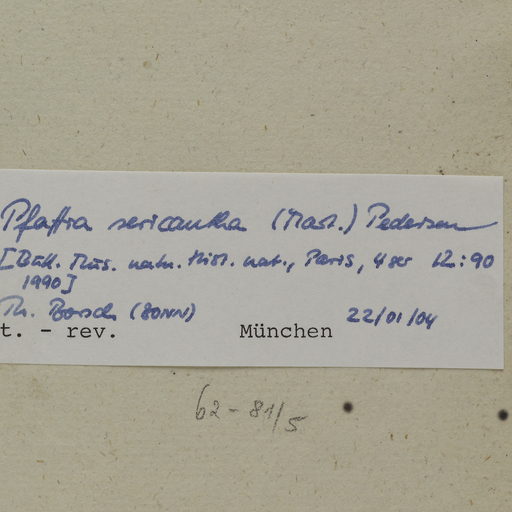 Pfaffia sericantha (Mart.) Pedersen
[Bull. Mus. natn. Hist. nat., Paris, 4 ser 12: 90
1990]
Th. Borsch (BONN) 22/01/04
t. - rev. München
62-81/5